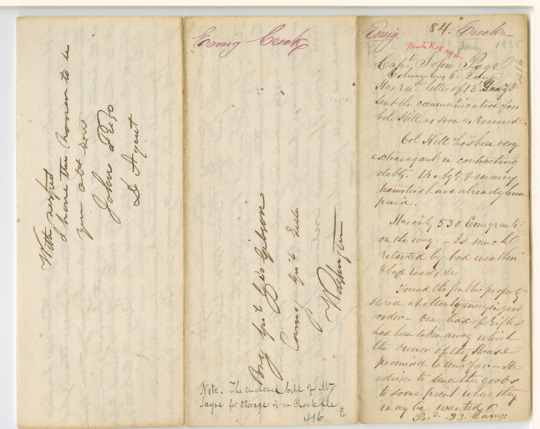 With respect
I have the honor to be
your obt. svt.
John Page
S. Agent
Emig Creek
Brig Genl Geo Gibson
Comsy Genl Subs
Washington
Note. The enclosed bill of Mr
Sayre for storage is in Creek file
416
Emig. 84. Creek
Capt. John Page
Columbus
Has recd. letter of 15
Sent the communication for
Col. Hill as soon as received.
Col. Hill has been very
extravagant in contracting
debts. of many
have already been
paid.
Has only 530 Emigrants
on the way. Is much
retarded by bad weather
& bad roads &c.
Found the public property
stored at in good
order. One box of rifles
had been taken away which
the owner of the House
promised to He
advises to send the goods
to some point where they
may be wanted.
Recd. 23